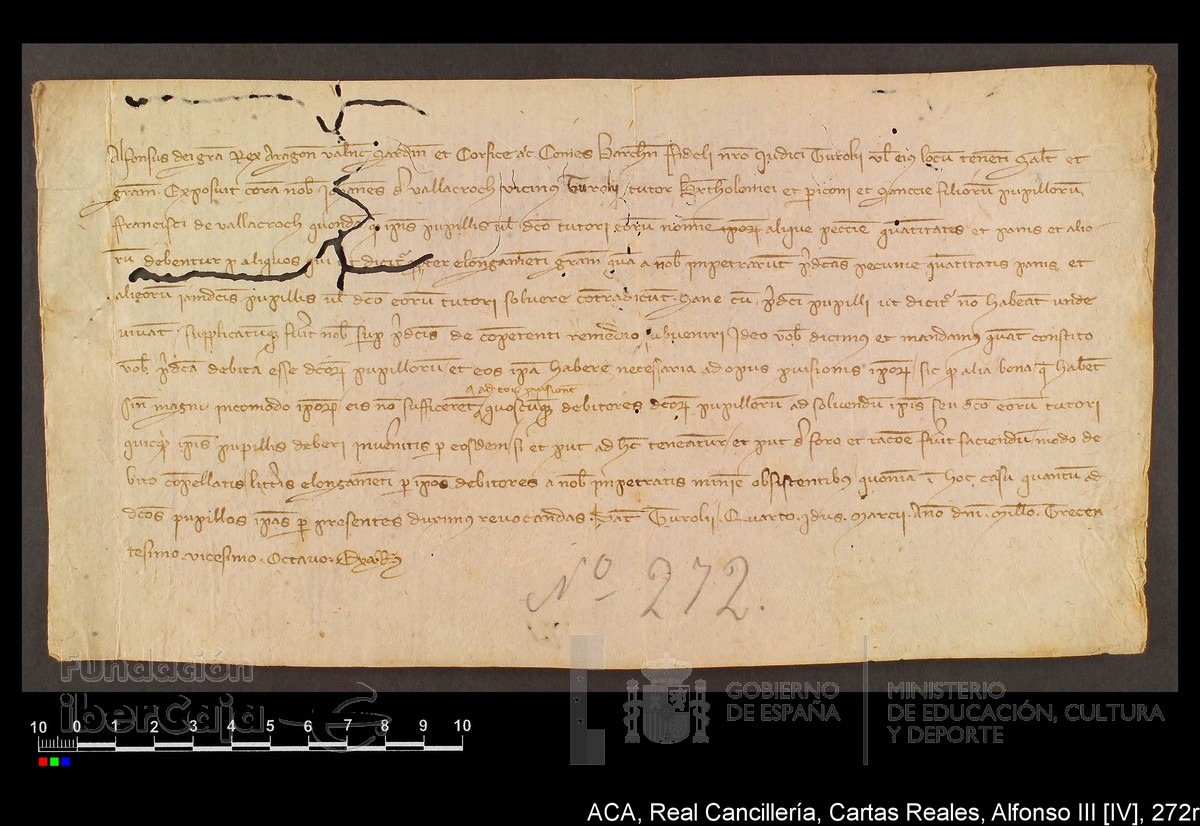 Alfonsus dei gra Rex Aragon Valenc Sardin et Corsice ac Comes Barchn fideli nro Judici Turolii vl eius locum tenenti Salt et
gram. Exposuit cora nob Johanes de Vallacroch vicinus Turolii tutor Bartholomei et periconi et Sanccie filiorum pupillorum
francisci de vallacroch quondam q ipis pupillis vl dco tutori eorum nomine ipor alique peccie quantitates et panis et alio
rum debentur p aliquos qui ut dicitr pter elongameti gram qua a nob impetrarunt pdcas pecunie quantitatis panis et
aliorum iamdcis pupillis vl dco eorum tutori solvere contradicunt. Sane cu pdci pupilli ut dicitr no habeat unde
vivat. supplicatuq fuit nob sup pdcis de competenti remedio subveniri Ideo vob dicimus et mandamus quat constito
vob pdca debita esse dcor pupillorum et eos ipa habere necessaria ad opus pvisionis ipor sic q alia bona q habet
sin magni incomodo ipor eis no sufficeret ad eor pvisione quoscuq debitores dcor pupillorum ad solvendum ipis seu dco eorum tutori
quicqd ipis pupillis deberi inveneritis p eosdem si et put ad hec teneatur et put de foro et racoe fuit faciendum modo de
bito copellatis litteris elongameti p ipos debitores a nob impetratis minie obsistentibus quonia i hoc casu quantum ad
dcos pupillos ipas per presentes duximus revocandas. Dat Turolii Quarto idus Marcii. Ano dni Millo Trecen
tesimo vicesimo Octavo.
Nº 272.
Fundación
iberCaja
GOBIERNO
DE ESPAÑA
MINISTERIO
DE EDUCACIÓN, CULTURA
Y DEPORTE
10 0 1 2 3 4 5 6 7 8 9 10
ACA, Real Cancillería, Cartas Reales, Alfonso III [IV], 272r